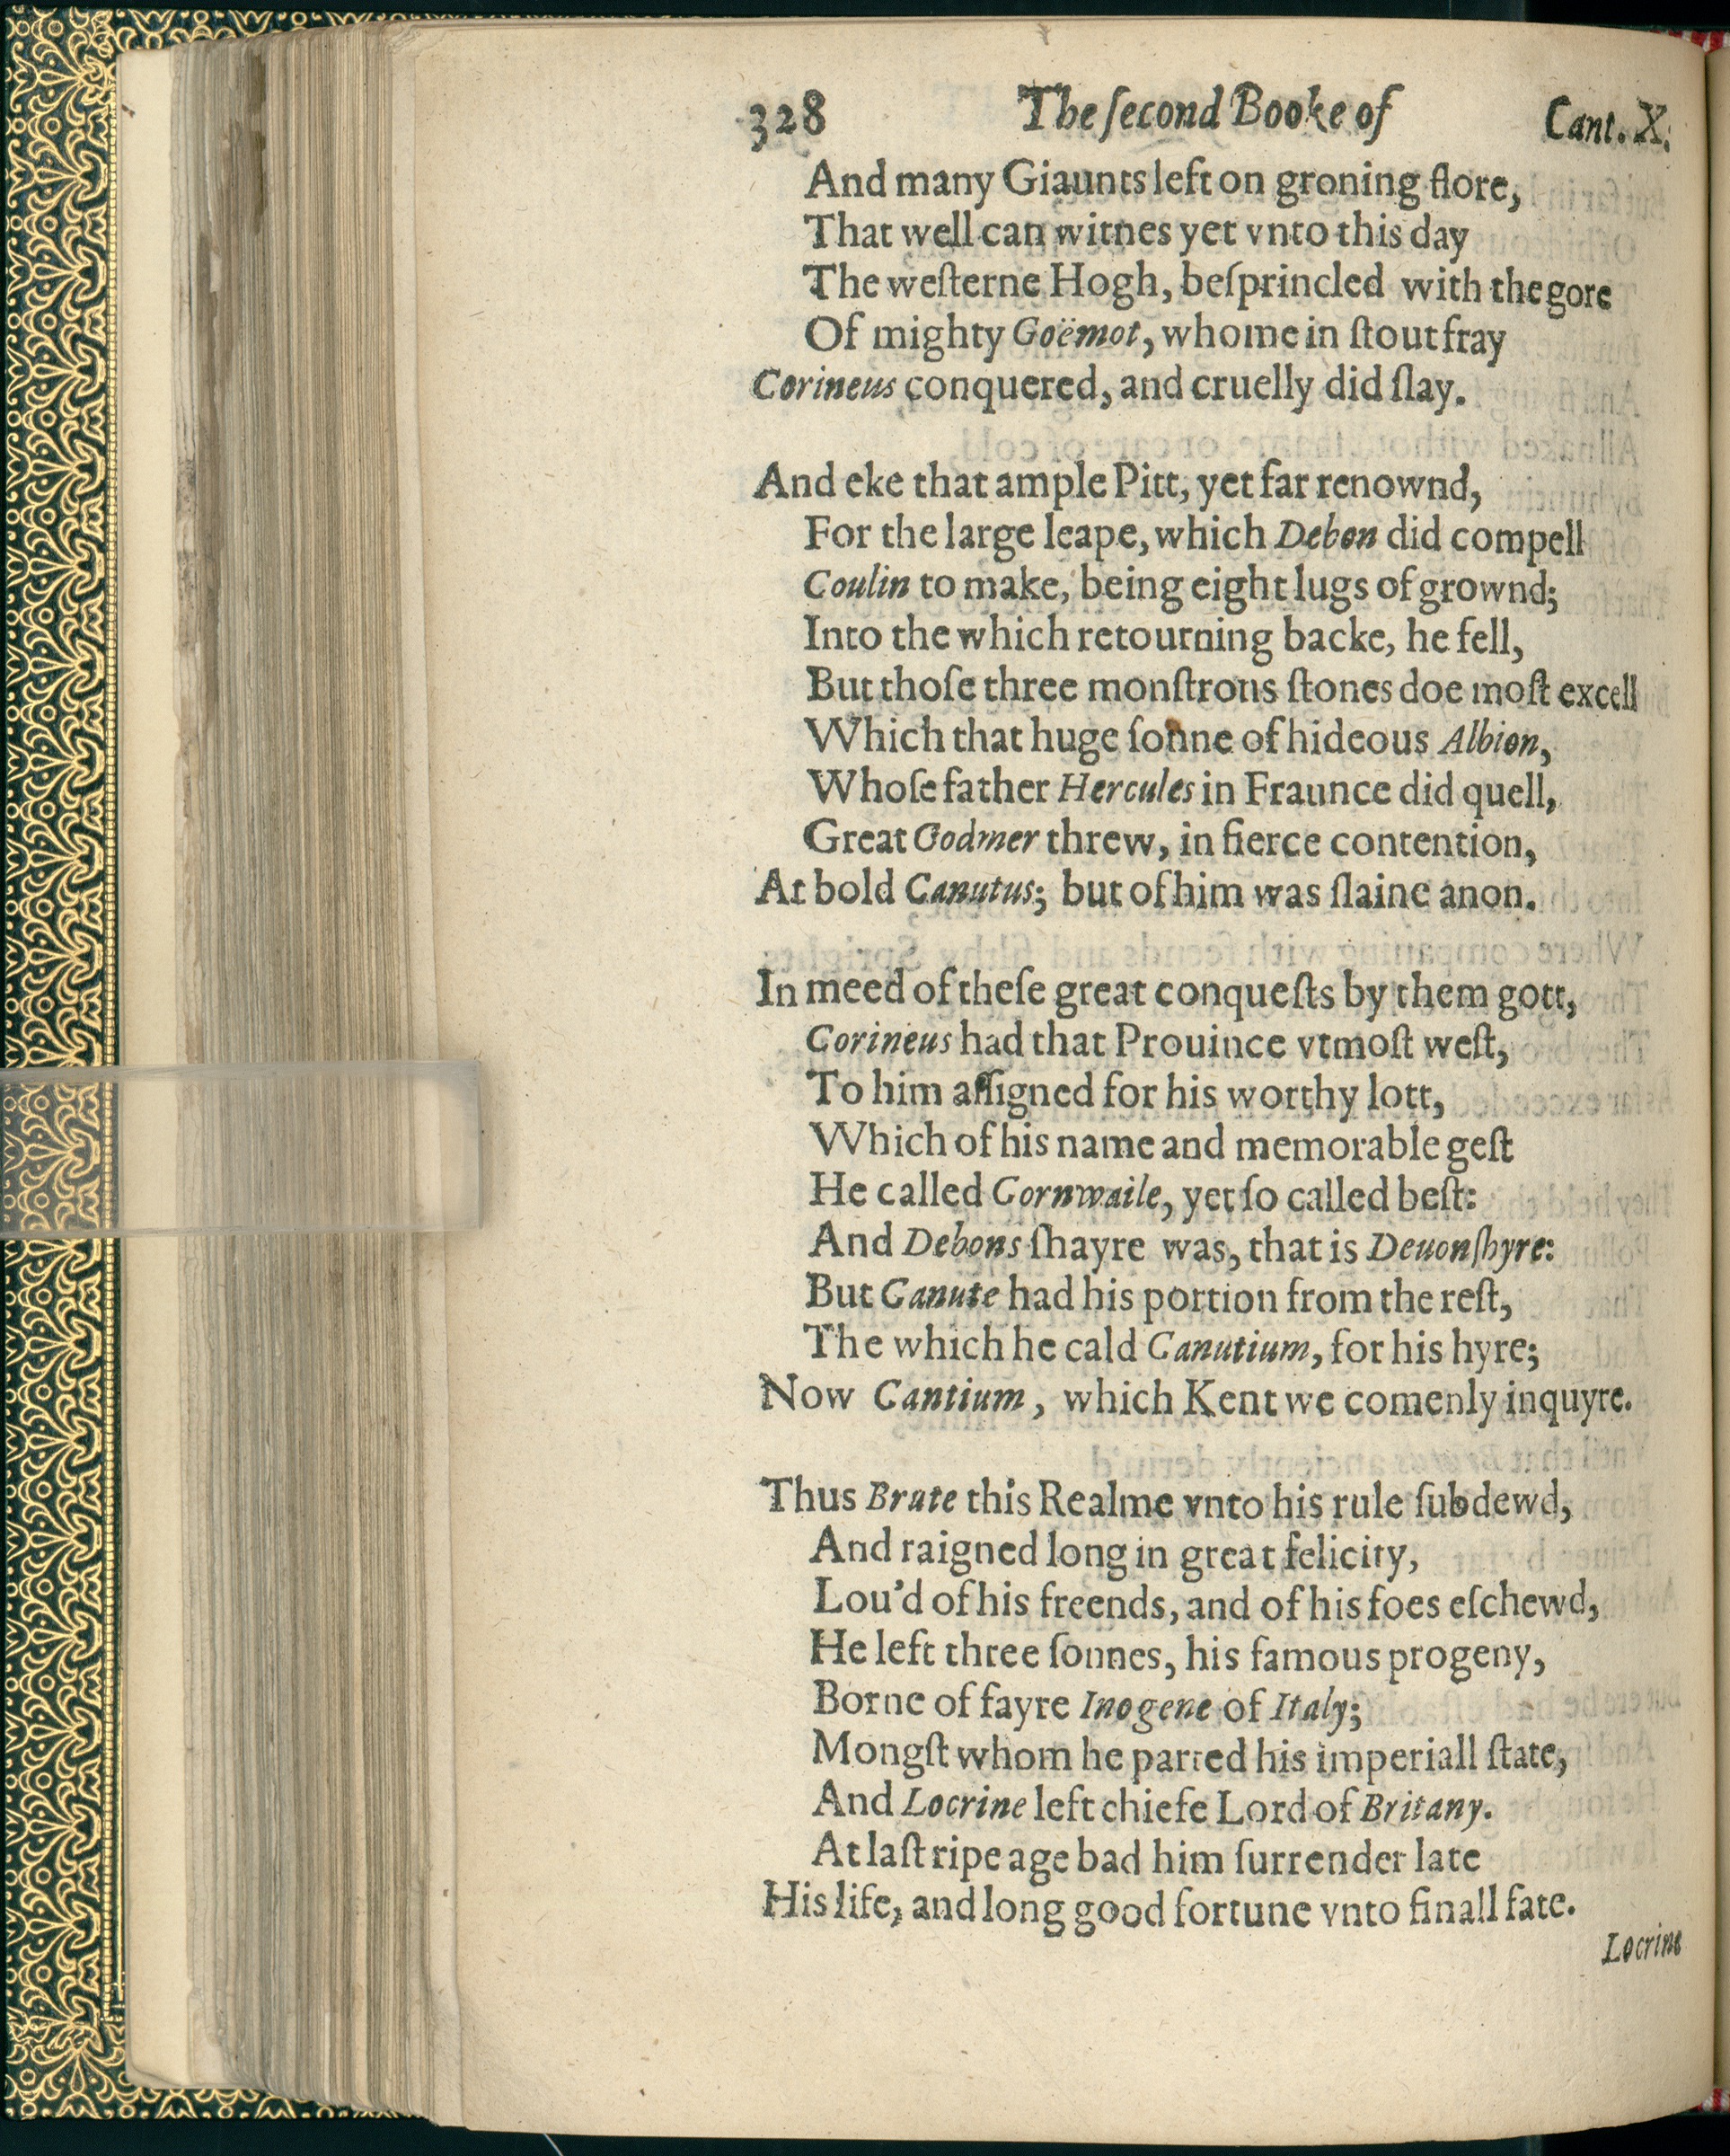 328 The ſecond Booke of Cant. X.
And many Giaunts left on groning flore,
That well can witnes yet vnto this day
The weſterne Hogh, beſprincled with the gore
Of mighty Goëmot, whome in ſtout fray
Corineus conquered, and cruelly did ſlay.
And eke that ample Pitt, yet far renownd,
For the large leape, which Debon did compell
Coulin to make, being eight lugs of grownd;
Into the which retourning backe, he fell,
But thoſe three monſtrous ſtones doe moſt excell
Which that huge ſonne of hideous Albion,
Whoſe father Hercules in Fraunce did quell,
Great Godmer threw, in fierce contention,
At bold Canutus; but of him was ſlaine anon.
In meed of theſe great conqueſts by them gott,
Corineus had that Prouince vtmoſt weſt,
To him aſſigned for his worthy lott,
Which of his name and memorable geſt
He called Cornwaile, yet ſo called beſt:
And Debons ſhayre was, that is Deuonſhyre:
But Canute had his portion from the reſt,
The which he cald Canutium, for his hyre;
Now Cantium, which Kent we comenly inquyre.
Thus Brute this Realme vnto his rule ſubdewd,
And raigned long in great felicity,
Lou'd of his freends, and of his foes eſchewd,
He left three ſonnes, his famous progeny,
Borne of fayre Inogene of Italy;
Mongſt whom he parted his imperiall ſtate,
And Locrine left chiefe Lord of Britany.
At laſt ripe age bad him ſurrender late
His life, and long good fortune vnto finall fate.
Locrine